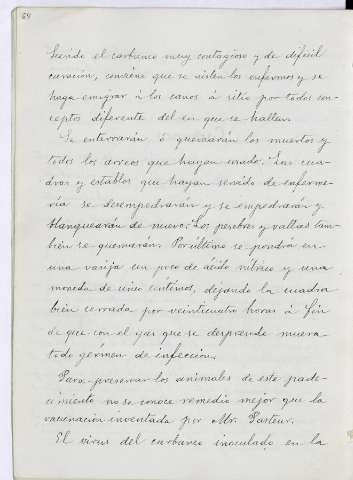 64
Siendo el carbunco muy contagioso y de difícil
curación, conviene que se aislen los enfermos y se
haga emigrar á los sanos á sitio por todos con-
ceptos diferente del en que se hallen.
Se enterrarán ó quemarán los muertos y
todos los arreos que hayan usado. Las cua-
dras y establos que hayan servido de enferme-
ría se desempedrarán y se empedrarán y
blanquearán de nuevo. Los pesebres y vallas tam-
bién se quemarán. Por último se pondrá en
una vasija un poco de ácido nítrico y una
moneda de cinco céntimos, dejando la cuadra
bien cerrada por veinticuatro horas á fin
de que con el gas que se desprende muera
todo gérmen de infección.
Para preservar los animales de este pade-
cimiento no se conoce remedio mejor que la
vacunación inventada por Mr. Pasteur.
El virus del carbunco inoculado en la